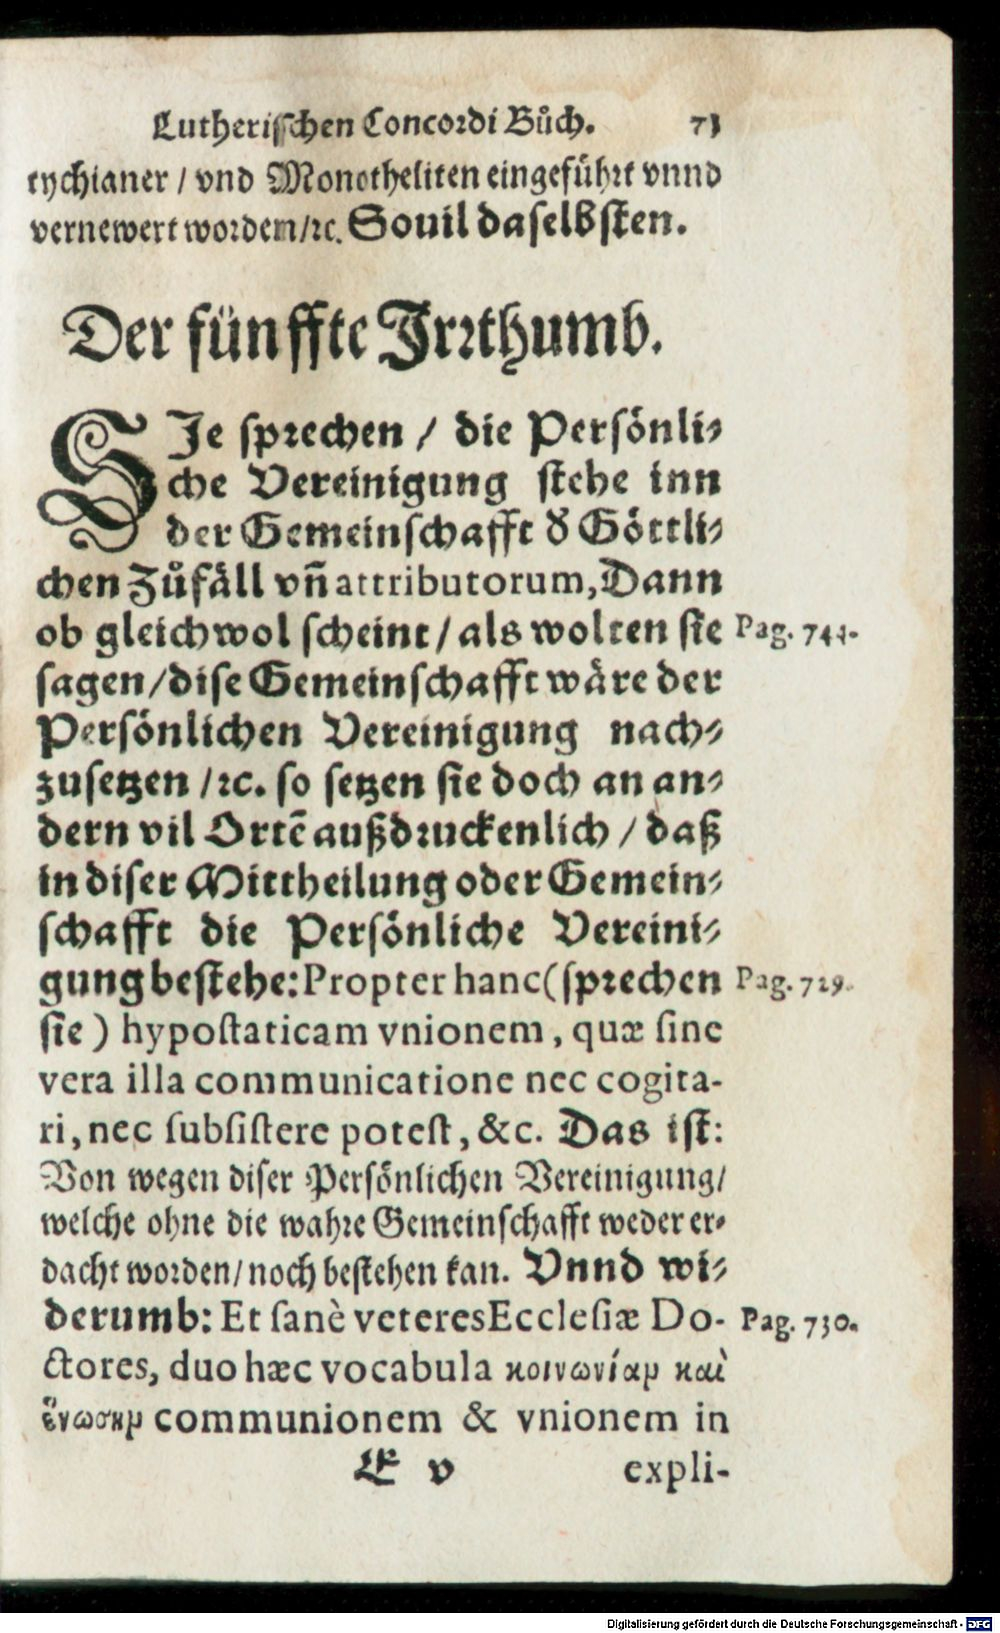 Lutherischen Concordi Bůch. 73
tychianer / vnd Monotheliten eingeführt vnnd
vernewert worden/ꝛc. Souil daselbsten.
Der fünffte Irrthumb.
SIe sprechen / die Persönli⸗
che Vereinigung stehe inn
der Gemeinschafft ď Göttli⸗
chen Zůfäll vñ attributorum, Dann
ob gleichwol scheint / als wolten sie Pag. 744.
sagen/dise Gemeinschafft wäre der
Persönlichen Vereinigung nach⸗
zusetzen /ꝛc. so setzen sie doch an an⸗
dern vil Ortẽ außdruckenlich / daß
in diser Mittheilung oder Gemein⸗
schafft die Persönliche Vereini⸗
gung bestehe: Propter hanc (sprechen Pag. 729.
sie ) hypostaticam vnionem, quæ sine
vera illa communicatione nec cogita-
ri, nec subsistere potest, &c. Das ist:
Von wegen diser Persönlichen Vereinigung/
welche ohne die wahre Gemeinschafft weder er⸗
dacht worden/noch bestehen kan. Vnnd wi⸗
derumb: Et sanè veteres Ecclesiæ Do- Pag. 730.
ctores, duo hæc vocabula κοινωνίαμ καὶ
ἕνωσημ communionem & vnionem in
E v expli-
Digitalisierung gefördert durch die Deutsche Forschungsgemeinschaft - DFG